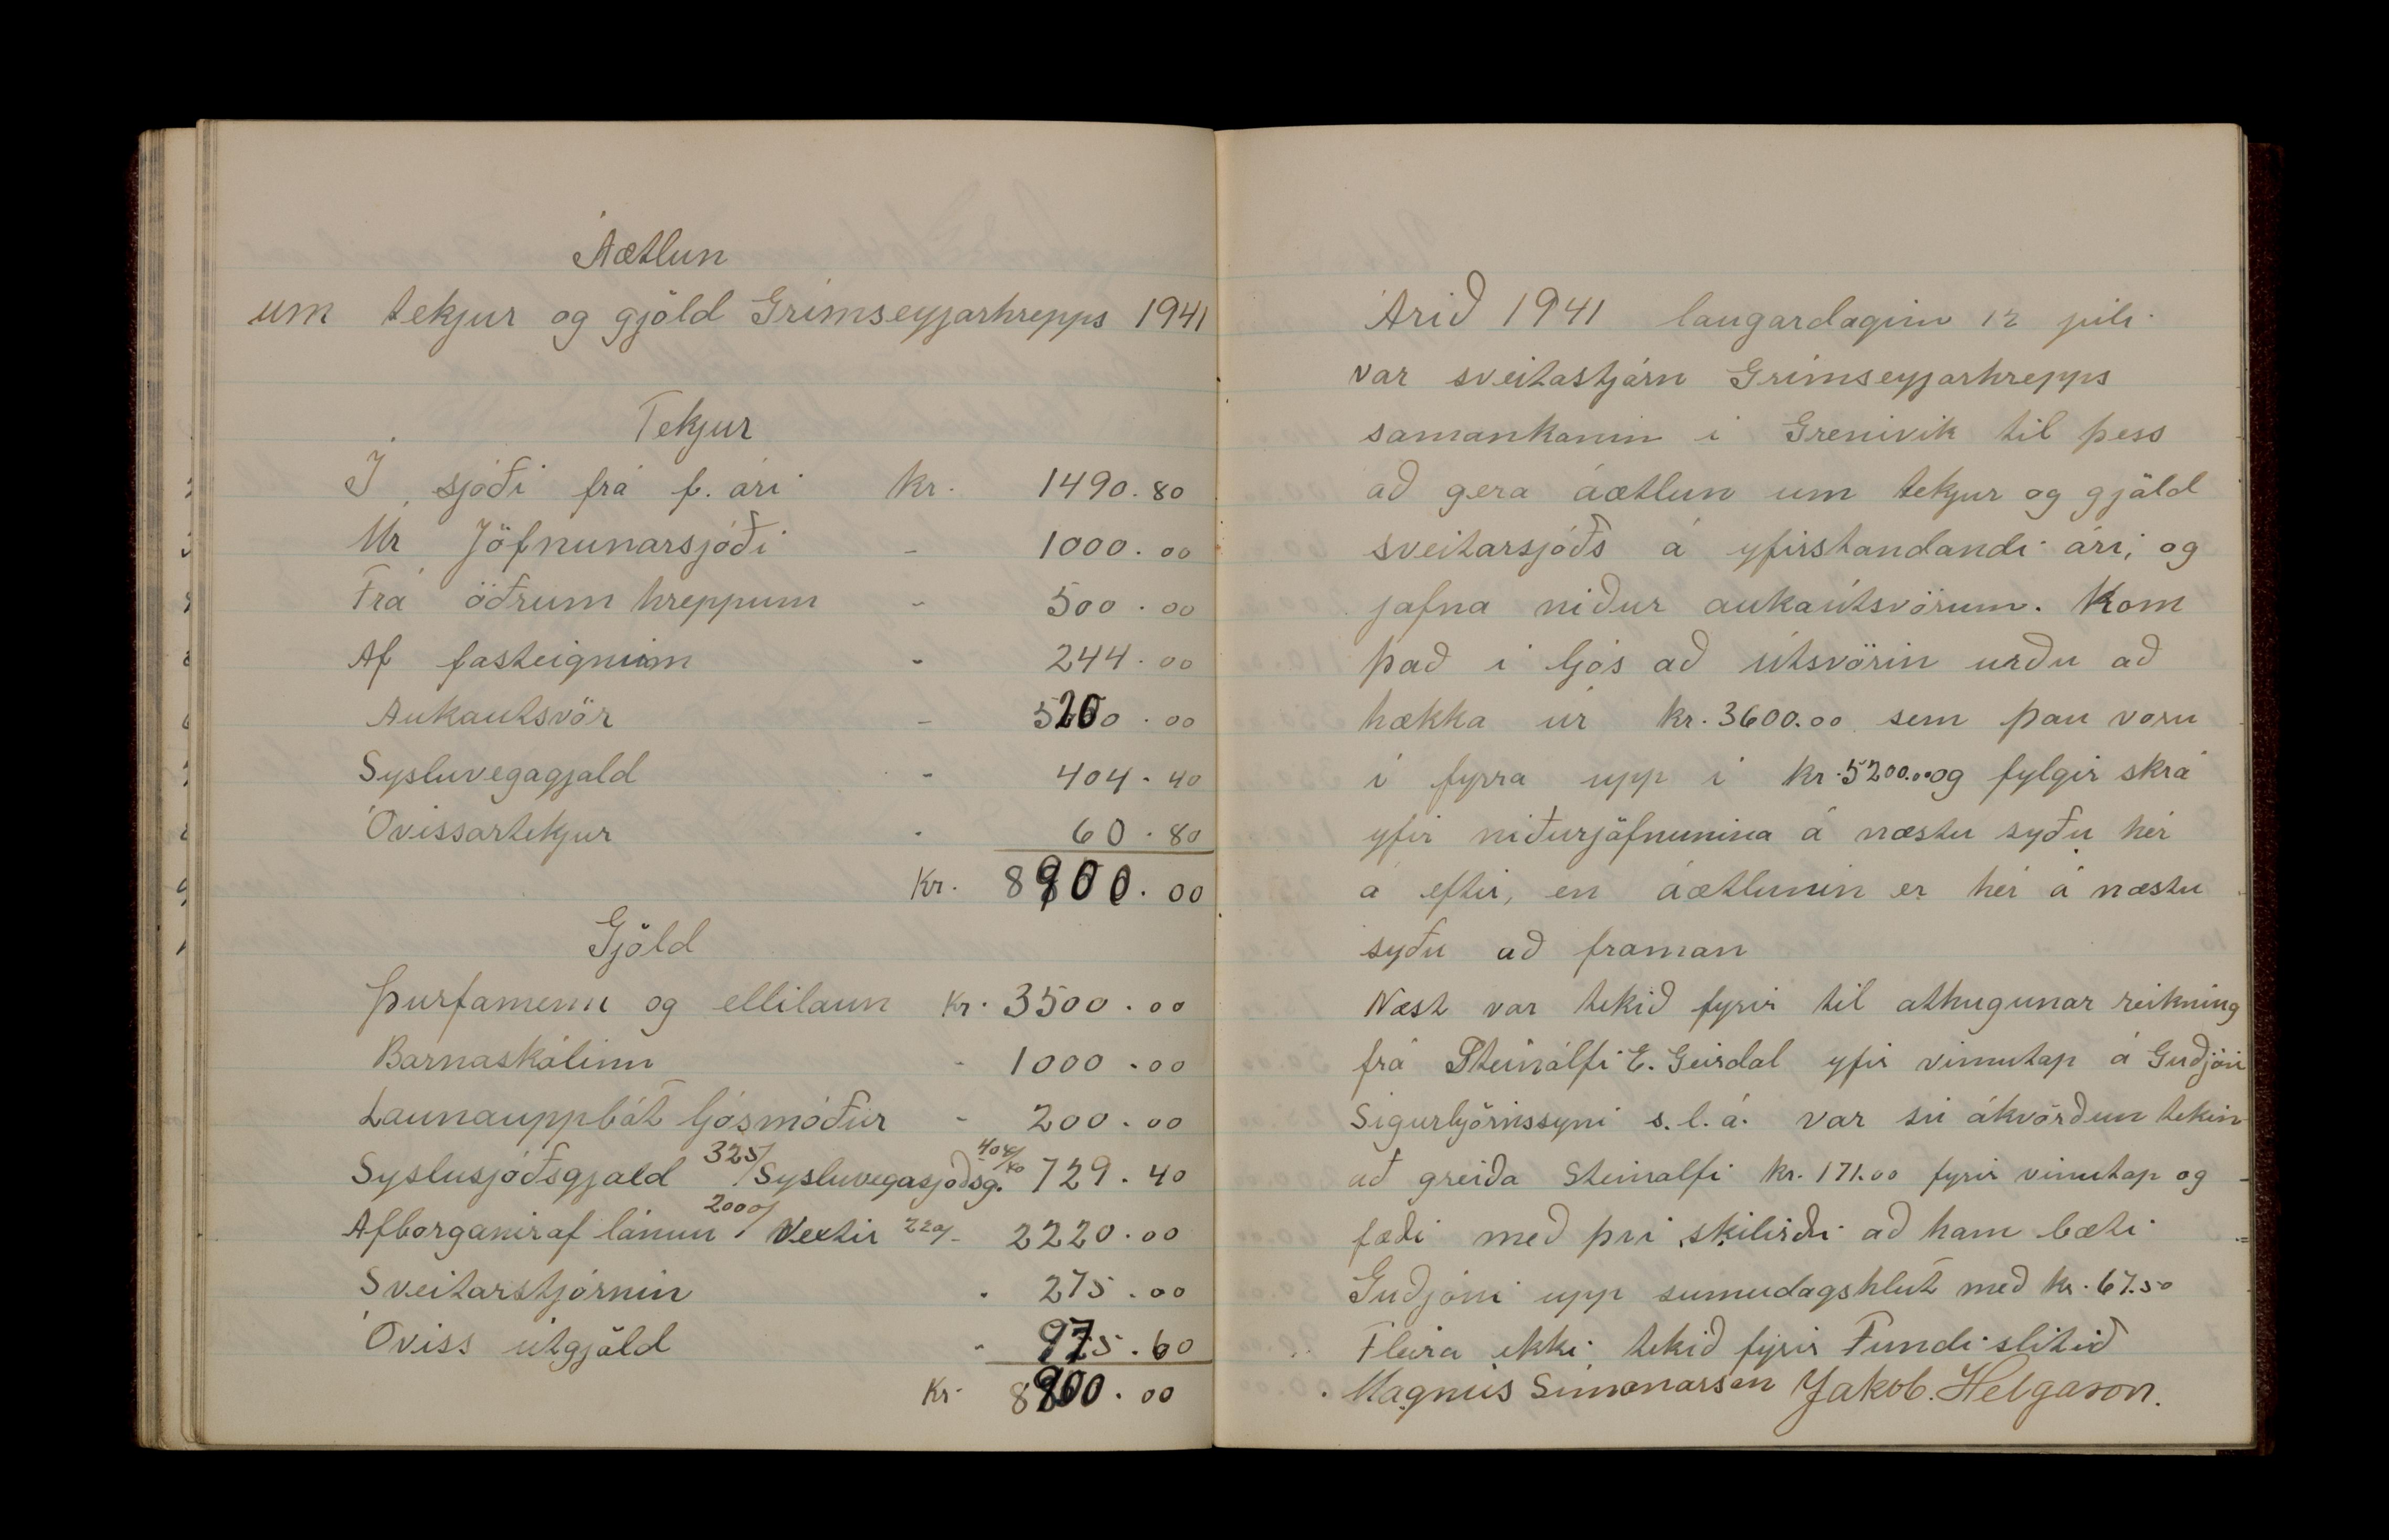 Áætlun
um tekjur og gjöld Grímseyjarhrepps 1941
Tekjur
Í sjóði frá f. ári kr. 1490.80
Úr Jöfnunarsjóði - 1000.00
Frá öðrum hreppum - 500.00
Af fasteignum - 244.00
Aukautsvör - 5200.00
Sysluvegagjald - 404.40
Óvissartekjur - 60.80
Kr. 8900.00
Gjöld
Þurfamenn og ellilaun Kr. 3500.00
Barnaskólinn - 1000.00
Launauppbót ljósmóður - 200.00
Syslusjóðsgjald 325/ Sysluvegasjóðsg. 404/40 729.40
Afborganir af lánum 2000/ Vextir 220/- 2220.00
Sveitarstjórnin - 275.00
Óviss útgjöld - 975.60
Kr. 8900.00
Árið 1941 laugardaginn 12 júlí
var sveitastjórn Grímseyjarhrepps
samankomin í Grenivík til þess
að gera áætlun um tekjur og gjöld
sveitarsjóðs á yfirstandandi ári, og
jafna niður aukaútsvörum. Kom
það í ljós að útsvörin urðu að
hækka úr kr. 3600.00 sem þau voru
í fyrra upp í kr. 5200.00 og fylgir skrá
yfir niðurjöfnunina á næstu syðu hér
á eftir, en áætlunin er hér á næstu
syðu að framan
Næst var tekið fyrir til athugunar reikning
frá Steinólfi E. Geirdal yfir vinnutap á Guðjóni
Sigurbjörnssyni s.l.á. var sú ákvörðun tekin
að greiða Steinolfi kr. 171.00 fyrir vinnutap og
fæði með því skilirði að hann bæti
Guðjóni upp sunnudagshlut með kr. 67.50
Fleira ekki tekið fyrir Fundi slitið
Magnús Símonarson Jakob. Helgason.